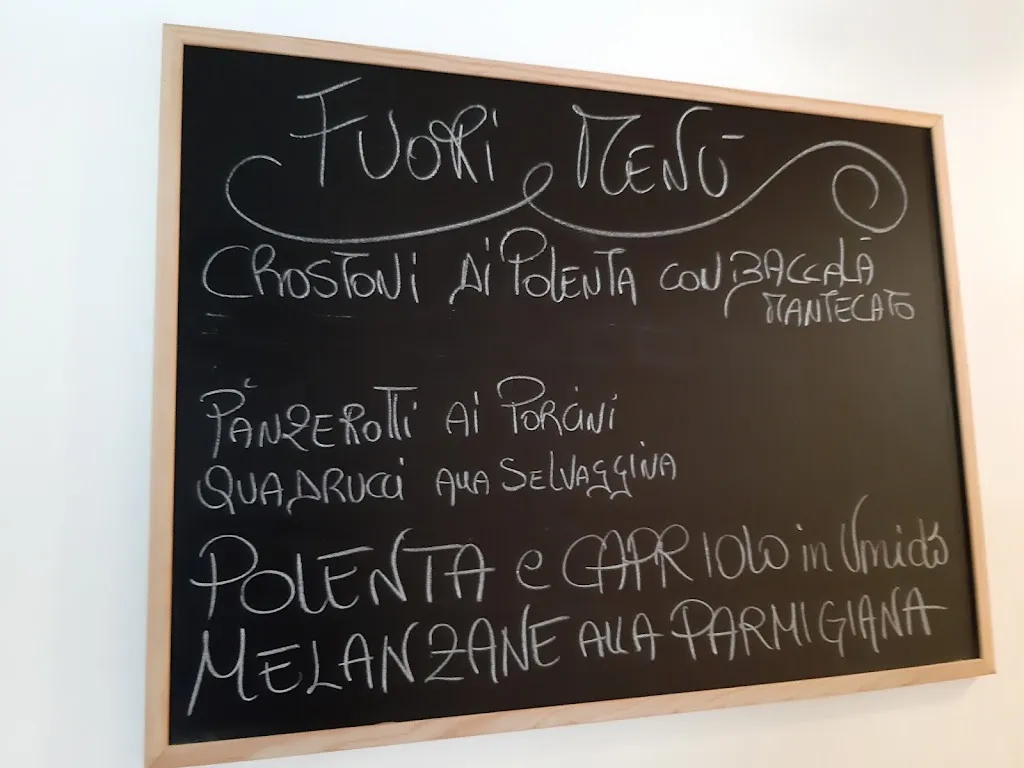 FUORI MENÙ
CROSTONI DI POLENTA CON BACCALÀ
MANTECATO
PANZEROTTI AI PORCINI
QUADRUCCI ALLA SELVAGGINA
POLENTA e CAPRIOLO in Umido
MELANZANE ALLA PARMIGIANA